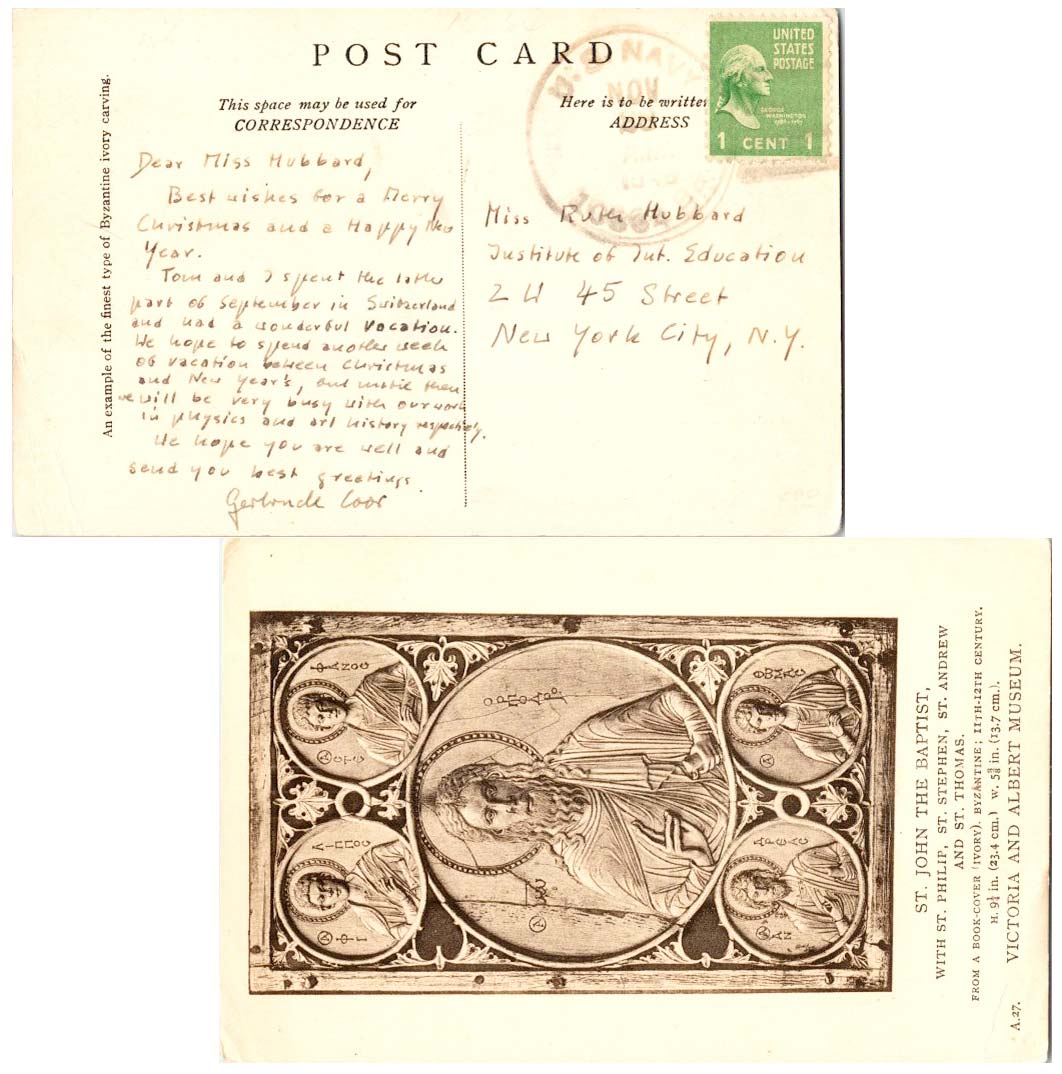 POST CARD
This space may be used for
CORRESPONDENCE
Here is to be written
ADDRESS
UNITED
STATES
POSTAGE
GEORGE
WASHINGTON
1 CENT 1
U.S. NAVY
NOV
An example of the finest type of Byzantine ivory carving.
Dear Miss Hubbard,
Best wishes for a Merry
Christmas and a Happy New
Year.
Tom and I spent the latter
part of September in Switzerland
and had a wonderful vacation.
We hope to spend another week
of vacation between Christmas
and New Year's, and until then
we will be very busy with our work
in physics and art history respectively.
We hope you are well and
send you best greetings.
Gertrude Coor
Miss Ruth Hubbard
Institute of Int. Education
2 W 45 Street
New York City, N.Y.
ΦΑΝΟС
СΤΕ
ΛΙΠΠΟС
ΦΙ
Ο ΡΠ
ΙΩ
ΘΩΜΑС
ΑΝ
ΔΡΕΑС
ST. JOHN THE BAPTIST,
WITH ST. PHILIP, ST. STEPHEN, ST. ANDREW
AND ST. THOMAS.
FROM A BOOK-COVER (IVORY). BYZANTINE; 11TH-12TH CENTURY.
H. 9¼ in. (23.4 cm.) W. 5⅜ in. (13.7 cm.).
A.27. VICTORIA AND ALBERT MUSEUM.